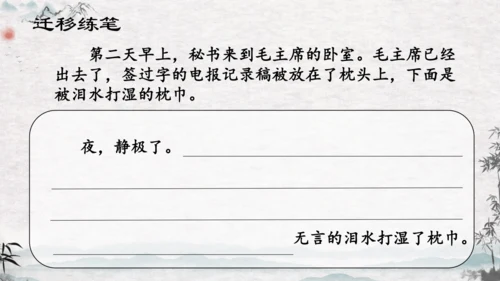 迁移练笔
第二天早上，秘书来到毛主席的卧室。毛主席已经
出去了，签过字的电报记录稿被放在了枕头上，下面是
被泪水打湿的枕巾。
夜，静极了。
无言的泪水打湿了枕巾。